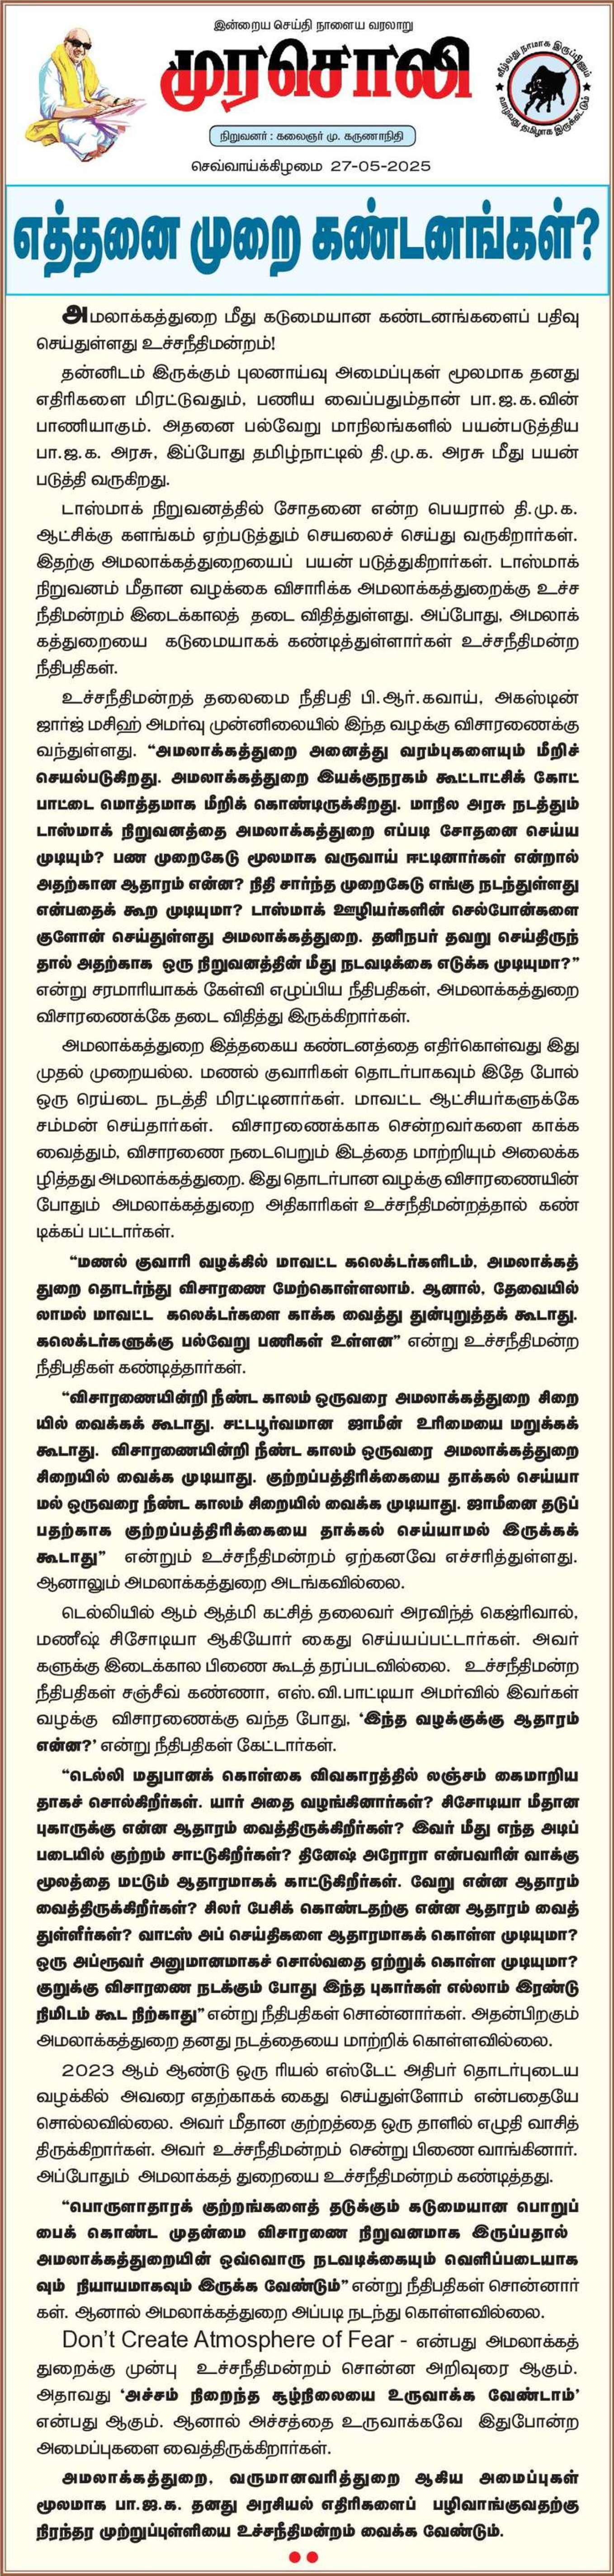 இன்றைய செய்தி நாளைய வரலாறு
முரசொலி
வீழ்வது நாமாக இருப்பினும்
வாழ்வது தமிழாக இருக்கட்டும்
நிறுவனர் : கலைஞர் மு. கருணாநிதி
செவ்வாய்க்கிழமை 27-05-2025
எத்தனை முறை கண்டனங்கள்?
அமலாக்கத்துறை மீது கடுமையான கண்டனங்களைப் பதிவு
செய்துள்ளது உச்சநீதிமன்றம்!
தன்னிடம் இருக்கும் புலனாய்வு அமைப்புகள் மூலமாக தனது
எதிரிகளை மிரட்டுவதும், பணிய வைப்பதும்தான் பா.ஜ.க.வின்
பாணியாகும். அதனை பல்வேறு மாநிலங்களில் பயன்படுத்திய
பா.ஜ.க. அரசு, இப்போது தமிழ்நாட்டில் தி.மு.க. அரசு மீது பயன்
படுத்தி வருகிறது.
டாஸ்மாக் நிறுவனத்தில் சோதனை என்ற பெயரால் தி.மு.க.
ஆட்சிக்கு களங்கம் ஏற்படுத்தும் செயலைச் செய்து வருகிறார்கள்.
இதற்கு அமலாக்கத்துறையைப் பயன் படுத்துகிறார்கள். டாஸ்மாக்
நிறுவனம் மீதான வழக்கை விசாரிக்க அமலாக்கத்துறைக்கு உச்ச
நீதிமன்றம் இடைக்காலத் தடை விதித்துள்ளது. அப்போது, அமலாக்
கத்துறையை கடுமையாகக் கண்டித்துள்ளார்கள் உச்சநீதிமன்ற
நீதிபதிகள்.
உச்சநீதிமன்றத் தலைமை நீதிபதி பி.ஆர்.கவாய், அகஸ்டின்
ஜார்ஜ் மசிஹ் அமர்வு முன்னிலையில் இந்த வழக்கு விசாரணைக்கு
வந்துள்ளது. “அமலாக்கத்துறை அனைத்து வரம்புகளையும் மீறிச்
செயல்படுகிறது. அமலாக்கத்துறை இயக்குநரகம் கூட்டாட்சிக் கோட்
பாட்டை மொத்தமாக மீறிக் கொண்டிருக்கிறது. மாநில அரசு நடத்தும்
டாஸ்மாக் நிறுவனத்தை அமலாக்கத்துறை எப்படி சோதனை செய்ய
முடியும்? பண முறைகேடு மூலமாக வருவாய் ஈட்டினார்கள் என்றால்
அதற்கான ஆதாரம் என்ன? நிதி சார்ந்த முறைகேடு எங்கு நடந்துள்ளது
என்பதைக் கூற முடியுமா? டாஸ்மாக் ஊழியர்களின் செல்போன்களை
குளோன் செய்துள்ளது அமலாக்கத்துறை. தனிநபர் தவறு செய்திருந்
தால் அதற்காக ஒரு நிறுவனத்தின் மீது நடவடிக்கை எடுக்க முடியுமா?”
என்று சரமாரியாகக் கேள்வி எழுப்பிய நீதிபதிகள், அமலாக்கத்துறை
விசாரணைக்கே தடை விதித்து இருக்கிறார்கள்.
அமலாக்கத்துறை இத்தகைய கண்டனத்தை எதிர்கொள்வது இது
முதல் முறையல்ல. மணல் குவாரிகள் தொடர்பாகவும் இதே போல்
ஒரு ரெய்டை நடத்தி மிரட்டினார்கள். மாவட்ட ஆட்சியர்களுக்கே
சம்மன் செய்தார்கள். விசாரணைக்காக சென்றவர்களை காக்க
வைத்தும், விசாரணை நடைபெறும் இடத்தை மாற்றியும் அலைக்க
ழித்தது அமலாக்கத்துறை. இது தொடர்பான வழக்கு விசாரணையின்
போதும் அமலாக்கத்துறை அதிகாரிகள் உச்சநீதிமன்றத்தால் கண்
டிக்கப் பட்டார்கள்.
“மணல் குவாரி வழக்கில் மாவட்ட கலெக்டர்களிடம், அமலாக்கத்
துறை தொடர்ந்து விசாரணை மேற்கொள்ளலாம். ஆனால், தேவையில்
லாமல் மாவட்ட கலெக்டர்களை காக்க வைத்து துன்புறுத்தக் கூடாது.
கலெக்டர்களுக்கு பல்வேறு பணிகள் உள்ளன” என்று உச்சநீதிமன்ற
நீதிபதிகள் கண்டித்தார்கள்.
“விசாரணையின்றி நீண்ட காலம் ஒருவரை அமலாக்கத்துறை சிறை
யில் வைக்கக் கூடாது. சட்டபூர்வமான ஜாமீன் உரிமையை மறுக்கக்
கூடாது. விசாரணையின்றி நீண்ட காலம் ஒருவரை அமலாக்கத்துறை
சிறையில் வைக்க முடியாது. குற்றப்பத்திரிக்கையை தாக்கல் செய்யா
மல் ஒருவரை நீண்ட காலம் சிறையில் வைக்க முடியாது. ஜாமீனை தடுப்
பதற்காக குற்றப்பத்திரிக்கையை தாக்கல் செய்யாமல் இருக்கக்
கூடாது” என்றும் உச்சநீதிமன்றம் ஏற்கனவே எச்சரித்துள்ளது.
ஆனாலும் அமலாக்கத்துறை அடங்கவில்லை.
டெல்லியில் ஆம் ஆத்மி கட்சித் தலைவர் அரவிந்த் கெஜ்ரிவால்,
மணீஷ் சிசோடியா ஆகியோர் கைது செய்யப்பட்டார்கள். அவர்
களுக்கு இடைக்கால பிணை கூடத் தரப்படவில்லை. உச்சநீதிமன்ற
நீதிபதிகள் சஞ்சீவ் கண்ணா, எஸ்.வி.பாட்டியா அமர்வில் இவர்கள்
வழக்கு விசாரணைக்கு வந்த போது, ‘இந்த வழக்குக்கு ஆதாரம்
என்ன?’ என்று நீதிபதிகள் கேட்டார்கள்.
“டெல்லி மதுபானக் கொள்கை விவகாரத்தில் லஞ்சம் கைமாறிய
தாகச் சொல்கிறீர்கள். யார் அதை வழங்கினார்கள்? சிசோடியா மீதான
புகாருக்கு என்ன ஆதாரம் வைத்திருக்கிறீர்கள்? இவர் மீது எந்த அடிப்
படையில் குற்றம் சாட்டுகிறீர்கள்? தினேஷ் அரோரா என்பவரின் வாக்கு
மூலத்தை மட்டும் ஆதாரமாகக் காட்டுகிறீர்கள். வேறு என்ன ஆதாரம்
வைத்திருக்கிறீர்கள்? சிலர் பேசிக் கொண்டதற்கு என்ன ஆதாரம் வைத்
துள்ளீர்கள்? வாட்ஸ் அப் செய்திகளை ஆதாரமாகக் கொள்ள முடியுமா?
ஒரு அப்ரூவர் அனுமானமாகச் சொல்வதை ஏற்றுக் கொள்ள முடியுமா?
குறுக்கு விசாரணை நடக்கும் போது இந்த புகார்கள் எல்லாம் இரண்டு
நிமிடம் கூட நிற்காது” என்று நீதிபதிகள் சொன்னார்கள். அதன்பிறகும்
அமலாக்கத்துறை தனது நடத்தையை மாற்றிக் கொள்ளவில்லை.
2023 ஆம் ஆண்டு ஒரு ரியல் எஸ்டேட் அதிபர் தொடர்புடைய
வழக்கில் அவரை எதற்காகக் கைது செய்துள்ளோம் என்பதையே
சொல்லவில்லை. அவர் மீதான குற்றத்தை ஒரு தாளில் எழுதி வாசித்
திருக்கிறார்கள். அவர் உச்சநீதிமன்றம் சென்று பிணை வாங்கினார்.
அப்போதும் அமலாக்கத் துறையை உச்சநீதிமன்றம் கண்டித்தது.
“பொருளாதாரக் குற்றங்களைத் தடுக்கும் கடுமையான பொறுப்
பைக் கொண்ட முதன்மை விசாரணை நிறுவனமாக இருப்பதால்
அமலாக்கத்துறையின் ஒவ்வொரு நடவடிக்கையும் வெளிப்படையாக
வும் நியாயமாகவும் இருக்க வேண்டும்” என்று நீதிபதிகள் சொன்னார்
கள். ஆனால் அமலாக்கத்துறை அப்படி நடந்து கொள்ளவில்லை.
Don't Create Atmosphere of Fear - என்பது அமலாக்கத்
துறைக்கு முன்பு உச்சநீதிமன்றம் சொன்ன அறிவுரை ஆகும்.
அதாவது ‘அச்சம் நிறைந்த சூழ்நிலையை உருவாக்க வேண்டாம்’
என்பது ஆகும். ஆனால் அச்சத்தை உருவாக்கவே இதுபோன்ற
அமைப்புகளை வைத்திருக்கிறார்கள்.
அமலாக்கத்துறை, வருமானவரித்துறை ஆகிய அமைப்புகள்
மூலமாக பா.ஜ.க. தனது அரசியல் எதிரிகளைப் பழிவாங்குவதற்கு
நிரந்தர முற்றுப்புள்ளியை உச்சநீதிமன்றம் வைக்க வேண்டும்.